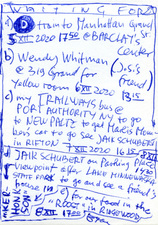 WAITING FOR
a) D train to Manhattan Grand St.
5 XII 2020 @ BARCLAY'S Center
b) Wendy Whitman
@ 319 Grand for
Yellow room 6 XII 2020
c) my TRAILWAYS bus @
PORT AUTHORITY NY to go
to NEW PALTZ to get Mares Mom's
car to go see JAIK SCHUBERT
in RIFTON 7 XII 2020 16:15
d) JAIK SCHUBERT on Parking Place
viewpoint after LAKE MINNEWASKA
STATE PARK to go and see a friend's
house
e) for my food in the
"ROOST" in RIDGEWOOD
8 XII 17:50